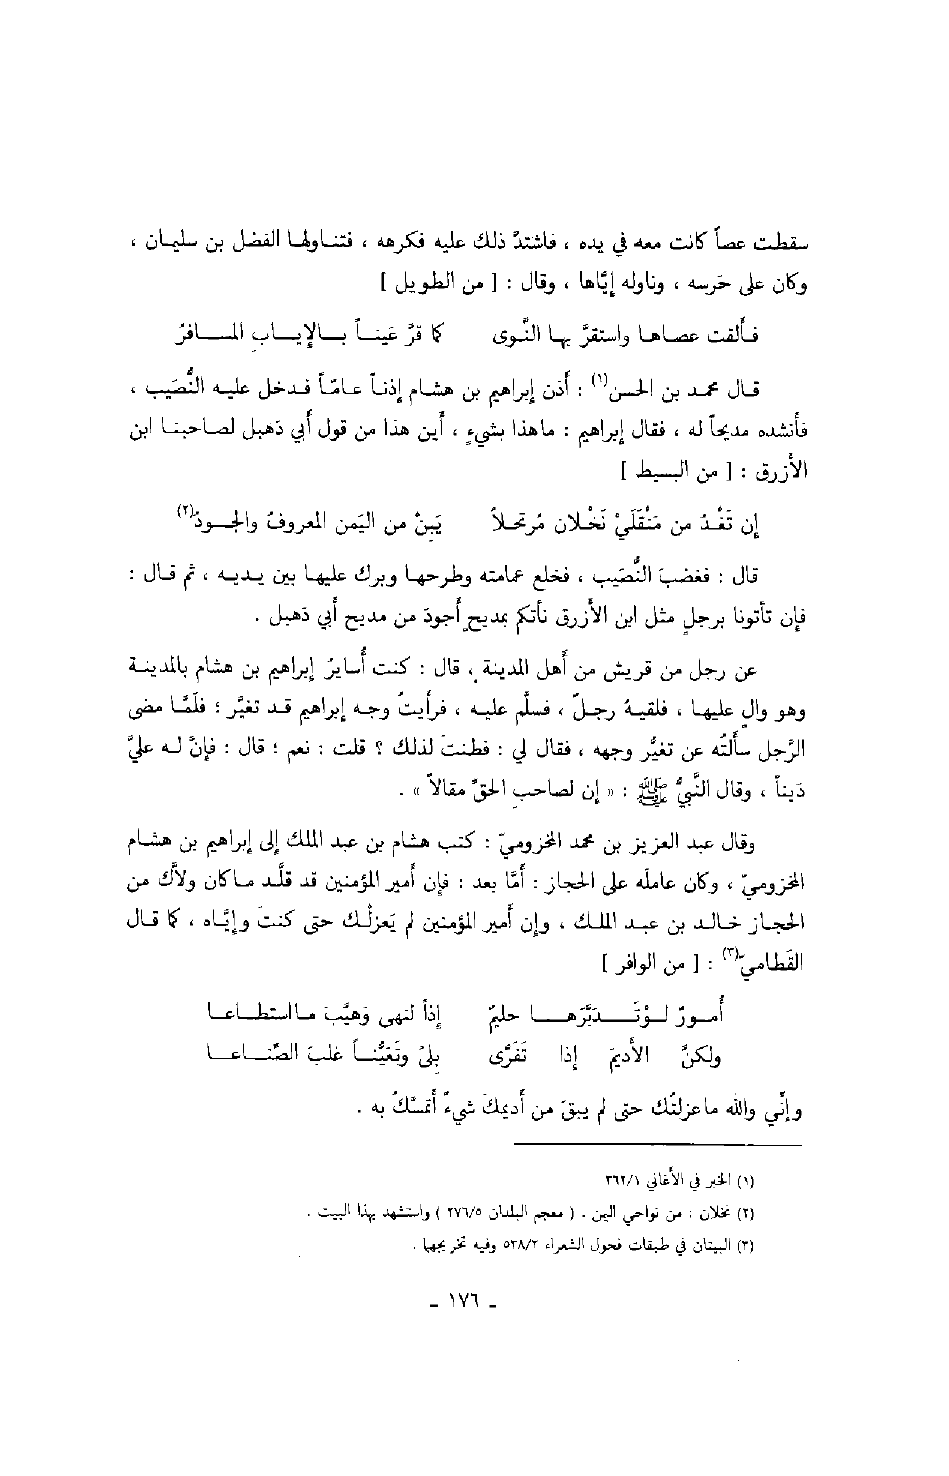 سقطت عصاً كانت معه في يده ، فاشتدَّ ذلك عليه فكرهه ، فتناولها الفضل بن سليمان ،
وكان على حَرسه ، وناوله إيَّاها ، وقال : [ من الطويل ]
فألقت عصاها واستقرَّ بها النَّوى كما قرَّ عَيناً بالإيابِ المسافرُ
قال محمد بن الحسن(١) : أذن إبراهيم بن هشام إذناً عامّاً فدخل عليه النُّصَيب ،
فأنشده مديحاً له ، فقال إبراهيم : ماهذا بشيءٍ ، أين هذا من قول أبي دَهبل لصاحبنا ابن
الأزرق : [ من البسيط ]
إن تَغْدُ من مَنْقَلَيْ نَخْلان مُرتحلاً يَبِنْ من اليَمن المعروفُ والجودُ(٢)
قال : فغضبَ النُّصَيب ، فخلع عمامته وطرحها وبرك عليها بين يديه ، ثم قال :
فإن تأتونا برجلٍ مثل ابن الأزرق نأتكم بمديحٍ أجودَ من مديح أبي دَهبل .
عن رجل من قريش من أهل المدينة ، قال : كنت أُسايرُ إبراهيم بن هشام بالمدينة
وهو والٍ عليها ، فلقيهُ رجلٌ ، فسلَّم عليه ، فرأيتُ وجه إبراهيم قد تغيَّر ؛ فلَمَّا مضى
الرَّجل سألتُه عن تغيُّر وجهه ، فقال لي : فطنتَ لذلك ؟ قلت : نعم ؛ قال : فإنَّ له عليَّ
دَيناً ، وقال النَّبيُّ ﷺ : « إن لصاحبِ الحقِّ مقالاً » .
وقال عبد العزيز بن محمد المخزوميّ : كتب هشام بن عبد الملك إلى إبراهيم بن هشام
المخزوميّ ، وكان عاملَه على الحجاز : أمَّا بعد : فإن أمير المؤمنين قد قلَّد ماكان ولاَّك من
الحجاز خالد بن عبد الملك ، وإن أمير المؤمنين لم يَعزلْك حتى كنتَ وإيَّاه ، كما قال
القَطاميّ(٣) : [ من الوافر ]
أمورٌ لوْتَدبَّرَها حليمٌ إذاً لنهى وَهيَّبَ مااستطاعا
ولكنَّ الأديمَ إذا تَفَرَّى بِلىً وتَعيُّناً غلبَ الصَّناعا
وإنِّي والله ماعزلتُك حتى لم يبقَ من أديمكَ شيءٌ أتمسَّكُ به .
(١) الخبر في الأغاني ٣٦٢/١
(٢) نخلان : من نواحي اليمن . ( معجم البلدان ٢٧٦/٥ ) واستشهد بهذا البيت .
(٣) البيتان في طبقات فحول الشعراء ٥٣٨/٢ وفيه تخريجها .
- ١٧٦ -